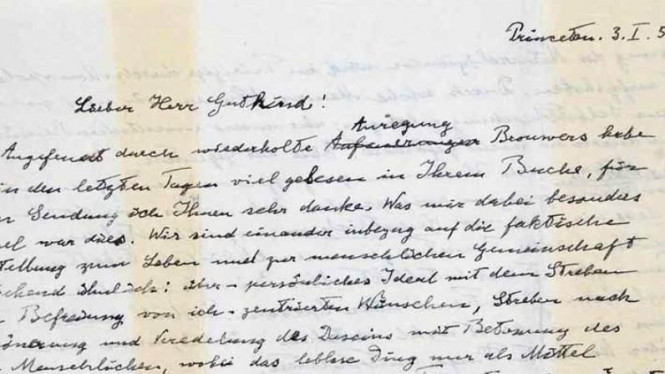 Princeton. 3. I. 5
Lieber Herr Gutkind!
Anregung
Angefeuert durch wiederholte Brouwers habe
in den letzten Tagen viel gelesen in Ihrem Buche, für
n Sendung ich Ihnen sehr danke. Was mir dabei besonders
el war dies. Wir sind einander inbezug auf die faktische
tellung zum Leben und zur menschlichen Gemeinschaft
chend ähnlich: über-persönliches Ideal mit dem Streben
Befreiung von ich-zentrierten Wünschen, Streben nach
önerung und Veredelung des Daseins mit Betonung des
Menschlichen, wobei das leblose Ding nur als Mittel